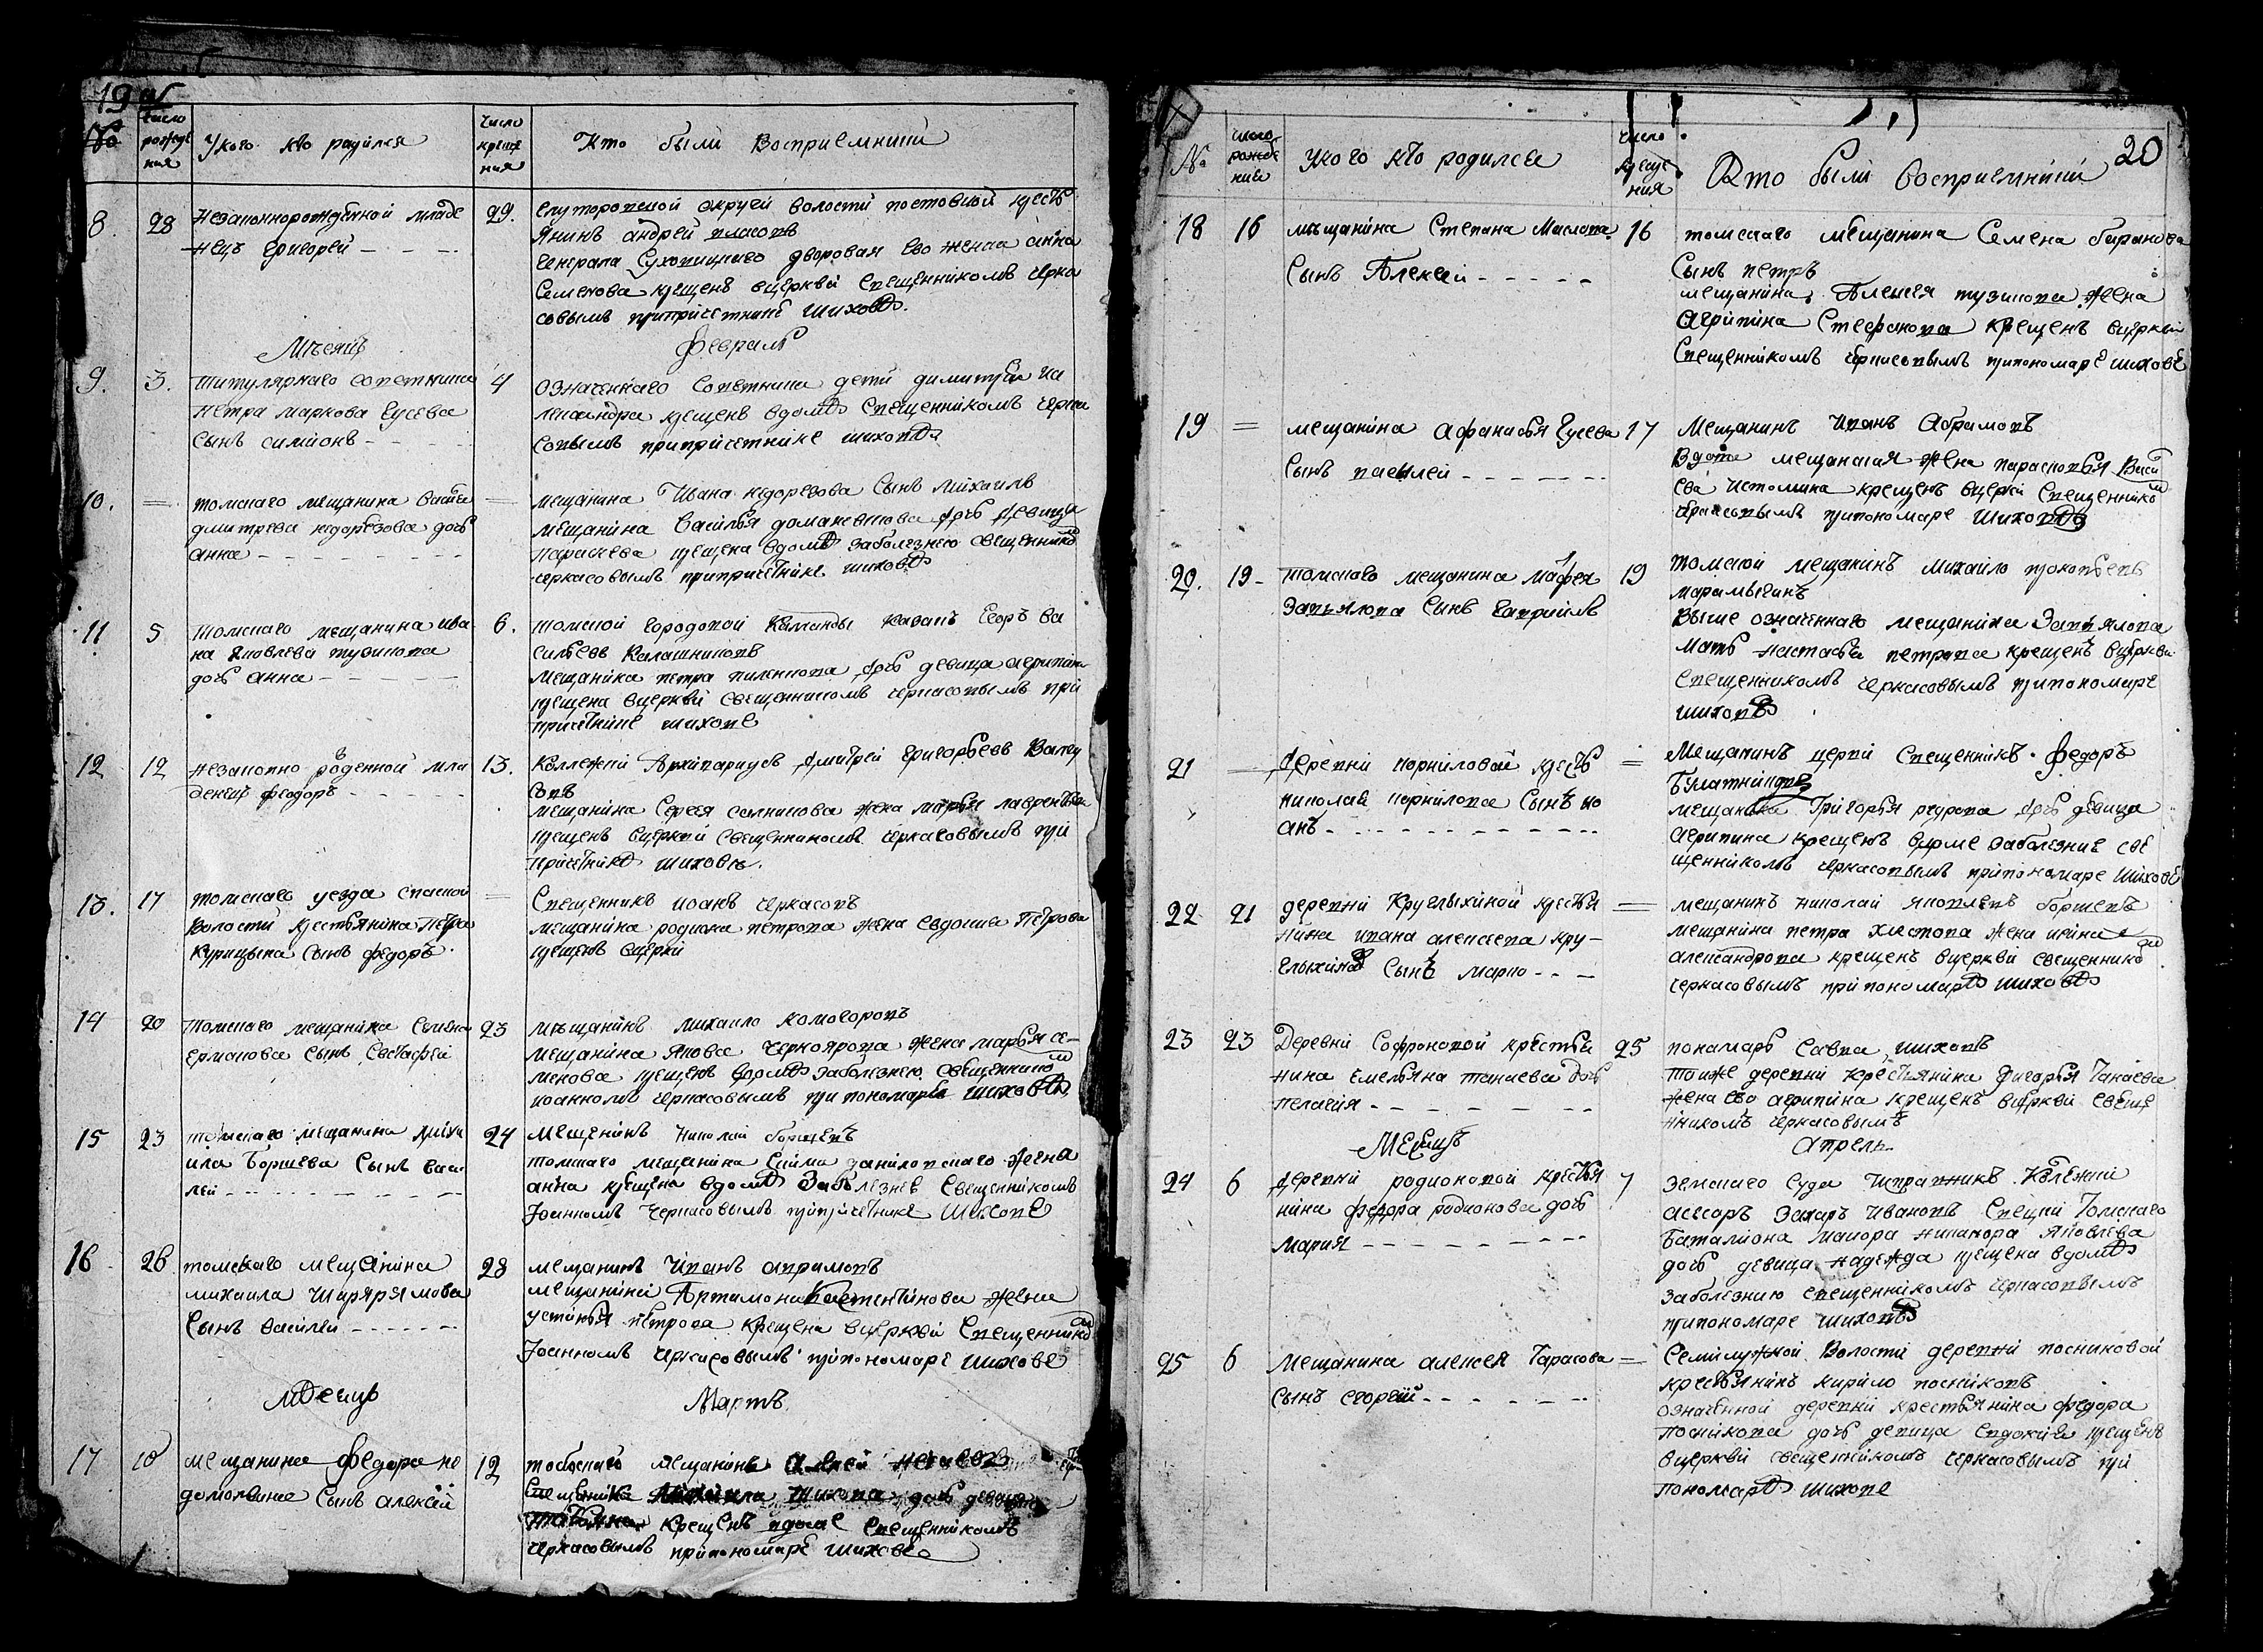 19 об
№
число рожде ния
У кого кто родился
число креще ния
Кто были восприемники
8
28
Незаконнорожденной младе
нецъ Григорей
29.
округи волости крестъ
янинъ андрей власовъ
генерала дворовая его женка анна
Семенова крещенъ вцеркви Священникомъ черка
совымъ припричетнике шиховѣ.
Мѣсяцъ
февраль
9.
3.
титулярнаго советника
петра маркова гусева
сынъ симионъ
4
означеннаго советника дети димитрей иа
лександра крещенъ вдомѣ Священникомъ черка
совымъ припричетнике шиховѣ
10.
=
томскаго мещанина васи
дмитрева недорезова дочь
анна
=
мещанина Ивана недорезова Сынъ михаилъ
мещанина Василья дочь девица
крещена вдомѣ заболезнею священнико
черкасовымъ припричетнике шиховѣ
11
5
томскаго мещанина ива
на яковлева тузикова
дочь анна
6.
томской городовой Команды казакъ Егоръ ва
сильевъ Калашниковъ
мещанина петра пиленкова дочь девица агрипина
крещена вцеркви священникомъ черкасовымъ при
причетнике шихове
12
12
незаконно роденной мла
денецъ феодоръ
13.
Коллежкій Архиваріусъ дмитрей григорьевъ
совъ
мещанина Сергея салникова жена марья лаврентьева
крещенъ вцеркви священникомъ черкасовымъ при
причетникѣ шиховѣ.
13.
17
томскаго уезда спаской
волости крестьянина Петра
Курицына сынъ федоръ
=
Священникъ иоанъ черкасовъ
мещанина родиона петрова жена евдокиа Петрова
крещенъ вцеркви
14
20
томскаго мещанина Семена
ермакова сынъ Евстафей
23
мещанинъ михаило комогоровъ
мещанина якова черноярова жена марья се
менова крещенъ вдомѣ заболезнею священнико
иоанномъ черкасовымъ при пономарѣ шиховѣ
15
23
томскаго мещанина миха
ила Борщева Сынъ васи
лей
24
мещенинъ николай борщевъ
томскаго мещанина жена
анна крещена вдомѣ заболезнею Священникомъ
Іоанномъ черкасовымъ припричетнике Шихове
16
26
томскаго мещанина
михаила
Сынъ василей
28
мещанинъ Иванъ аврамовъ
мещанина Артамона жена
устинья петрова крещена вцеркви Священнико
Іоанномъ черкасовымъ припономаре шихове
мѣсяцъ
Мартъ
17
10
мещанина федора не
домолвина сынъ алексей
12
тобоскаго мещанинъ
Священника шихова дочь девица
крещенъ вдоме священникомъ
черкасовымъ припономаре шихове
20
№
число рожде ние
У кого кто родился
число креще ния
Кто были восприемники
18
16
мещанина Степана Маслова
Сынъ Алексей
16
томскаго мещанина Семена баранова
Сынъ петръ
мещанина Алексея тузикова жена
Агрипина Стефанова крещенъ вцеркви
Священникомъ черкасовымъ припономаре шихове
19
=
мещанина афанасья Гусева
Сынъ василей
17
Мещанинъ Иванъ Абрамовъ
Вдова мещанская жена парасковья Васи
ева истомина крещенъ вцеркви Священнико
черкасовымъ припономаре шиховѣ
20.
19
томскаго мещанина мафея
завьялова сынъ гавриилъ
19
томской мещанинъ михайло прокопьевъ
марамыгинъ
Выше означеннаго мещанина Завьялова
мать настасья петрова крещенъ вцеркви
Священникомъ черкасовымъ припономаре
шиховѣ
21
=
деревни корниловой кресть
николая корнилова Сынъ ио
анъ
=
Мещанинъ церкви Священникъ федоръ
мещанина Григорья дочь девица
агрипина крещенъ вдоме заболезние свя
щенникомъ черкасовымъ припономаре шихове
22
21
деревни Круглыхиной крестья
нина ивана алексеева кру
глыхина Сынъ марко
=
мещанинъ николай яковлевъ борщевъ
мещанина петра хлыстова жена ирина
александрова крещенъ вцеркви священнико
черкасовымъ припономарѣ шиховѣ
23
23
Деревни Софроновой крестья
нина емельяна танаева дочь
пелагия
25
пономарь савва шиховъ
тоиже деревни крестьянина Григорья Танаева
жена его агрипина крещенъ вцеркви свяще
нникомъ черкасовымъ
Месяцъ
апрель
24
6
деревни родионовой крестья
нина федора родионова дочь
Мария
7
земскаго суда исправникъ Колежкій
асесаръ Захаръ Ивановъ Томскаго
баталиона маиора никанора яковлева
дочь девица надежда крещена вдомѣ
заболезнию священникомъ черкасовымъ
припономаре шиховѣ
25
6
мещанина алексея Тарасова
сынъ егоргий
=
Семилужной Волости деревни посниковой
крестьянинъ кирило посниковъ
означенной деревни крестьянина федора
посникова дочь девица Евдокия крещенъ
вцеркви священникомъ черкасовымъ при
пономарѣ шихове